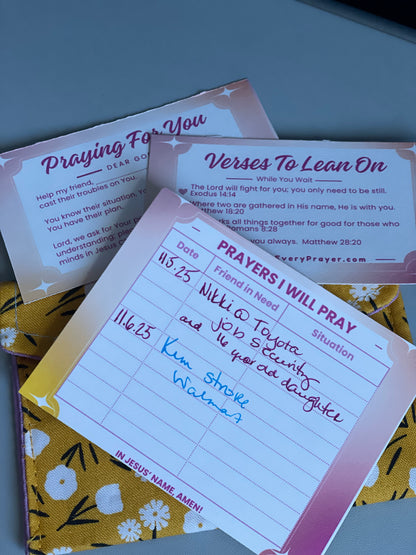 Praying For You
DEAR GO
Help my friend,
cast their troubles on You.
You know their situation, Yo
You have their plan.
Lord, we ask for Your p
understanding; pla
minds in Jesus C
Verses To Lean On
While You Wait
The Lord will fight for you; you only need to be still.
Exodus 14:14
Where two are gathered in his name, He is with you.
Matthew 18:20
ks all things together for good for those who
omans 8:28
you always. Matthew 28:20
EveryPrayer.com
PRAYERS I WILL PRAY
Date Friend in Need Situation
11.5.25 Nikki @ Toyota
job security
and 16 year old daughter
11.6.25 Kim stroke
Walmart
IN JESUS' NAME, AMEN!